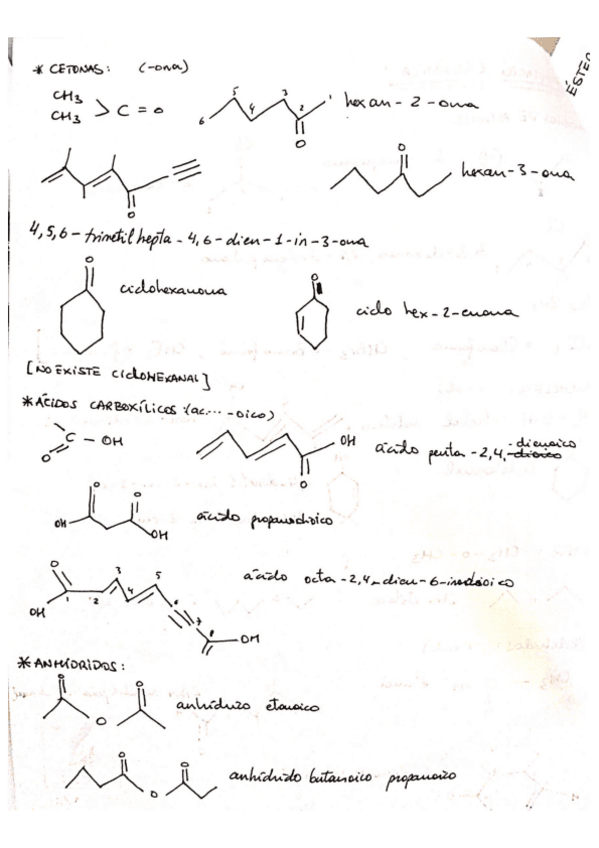 ÉSTER
* CETONAS: (-ona)
CH3
CH3 > C = O
6 5 4 3 2 1 O hexan-2-ona
O
O hexan-3-ona
4,5,6-trimetil hepta-4,6-dien-1-in-3-ona
O ciclohexanona
O ciclo hex-2-enona
[NO EXISTE CICLOHEXANAL]
* ÁCIDOS CARBOXÍLICOS: (ac... -oico)
O C - OH
O OH ácido penta-2,4,-dienoico
O OH O OH ácido propanodioico
O OH 1 2 3 4 5 6 7 8 OH ácido octa-2,4-dien-6-inodioico
* ANHÍDRIDOS:
O O O anhídrido etanoico
O O O anhídrido butanoico propanoico